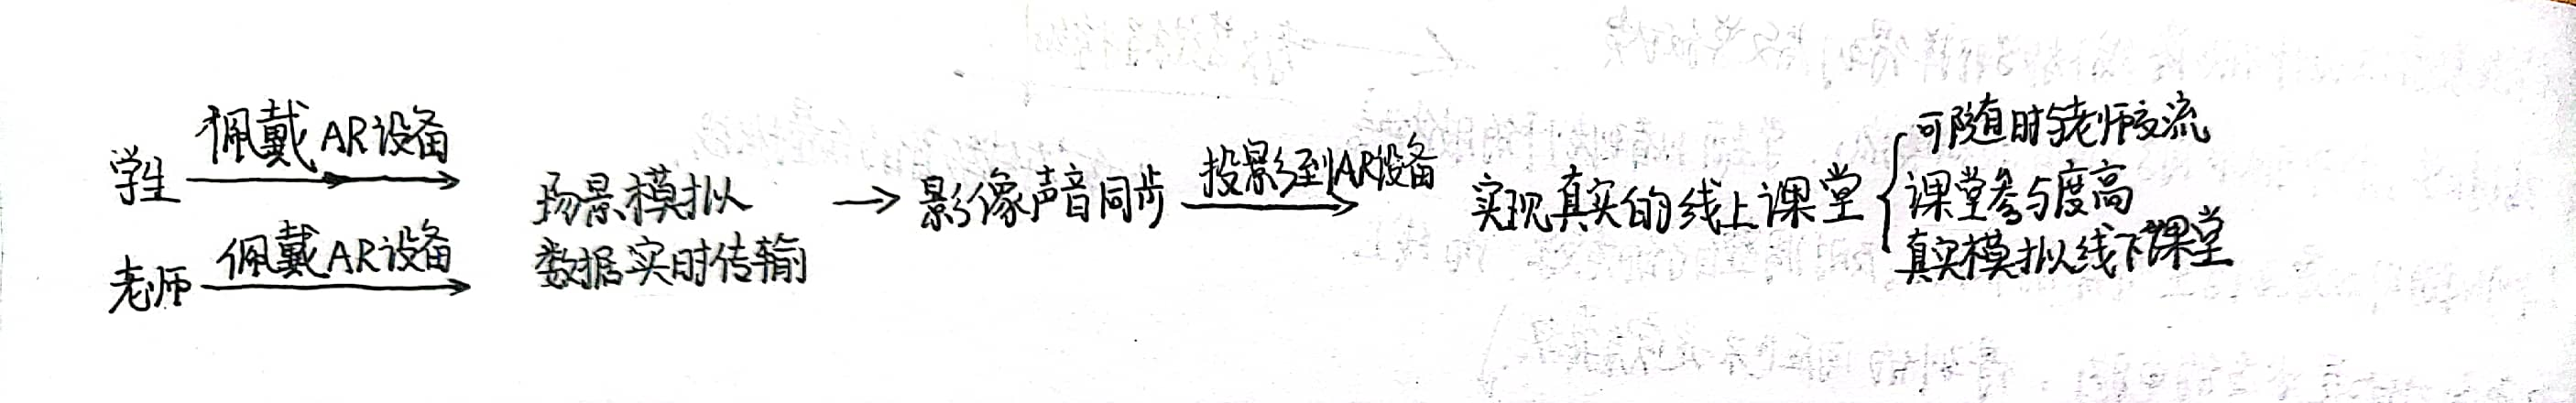 学生 佩戴AR设备
老师 佩戴AR设备
场景模拟
数据实时传输
→ 影像声音同步
投影到AR设备
实现真实的线上课堂
可随时与老师交流
课堂参与度高
真实模拟线下课堂